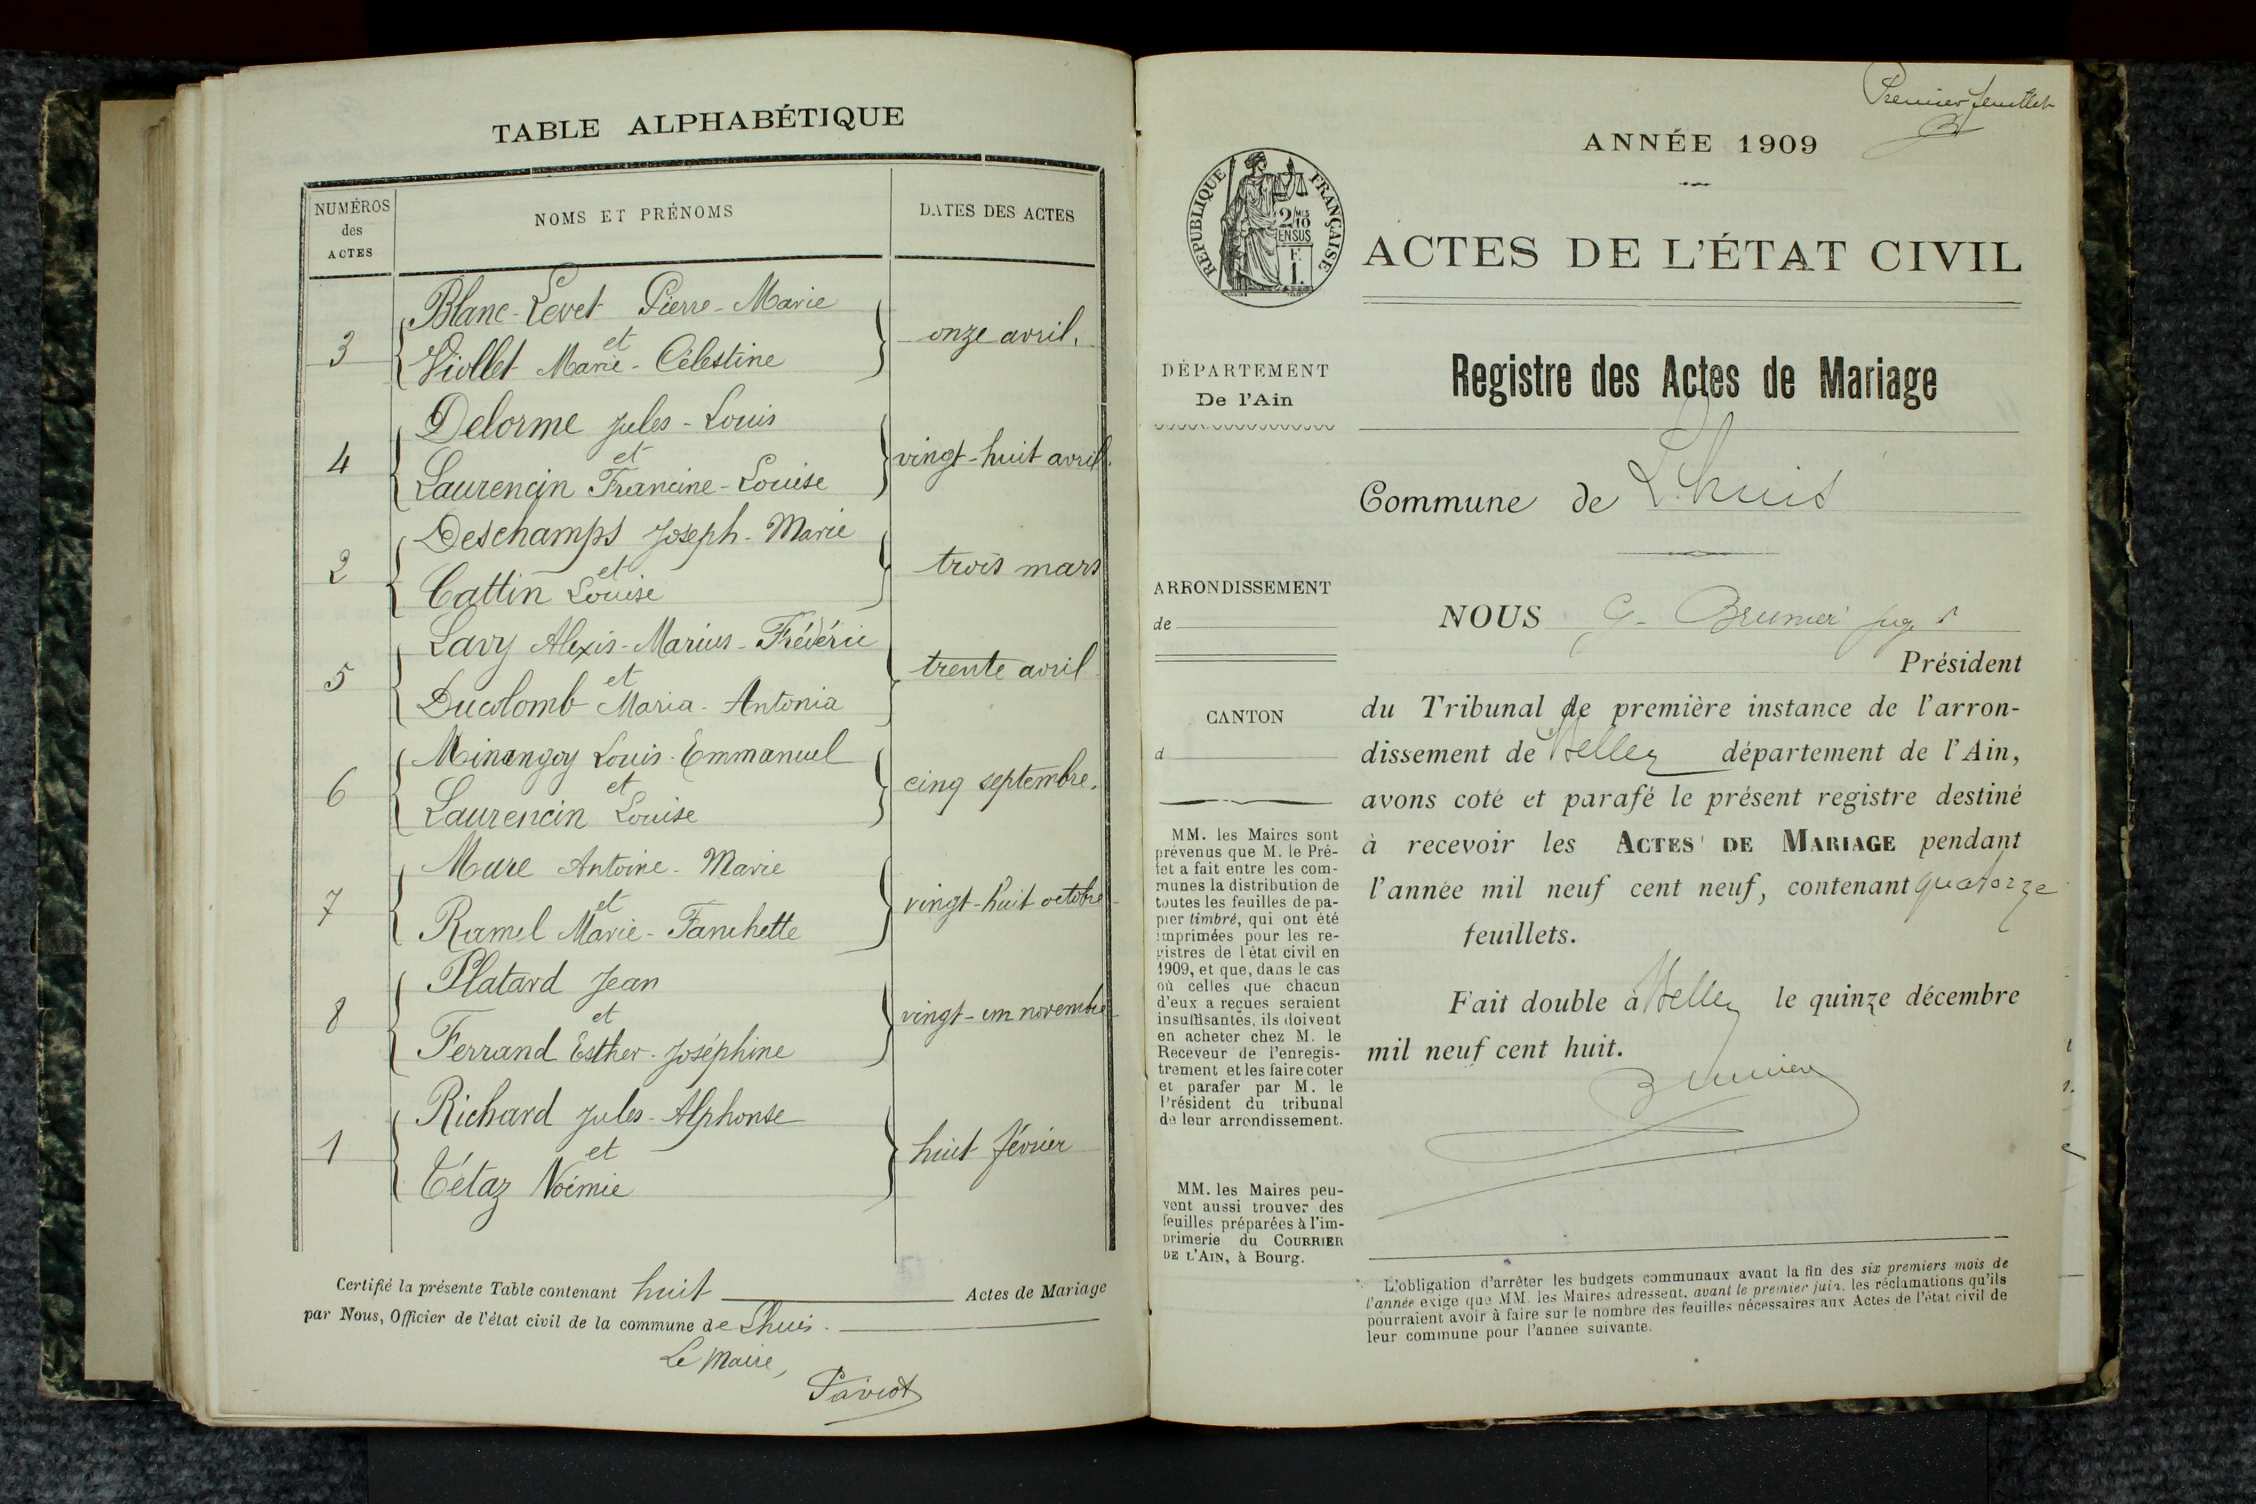 TABLE ALPHABÉTIQUE
NUMÉROS
des
ACTES
NOMS ET PRÉNOMS
DATES DES ACTES
3
Blanc-Levet Pierre-Marie
et
Viollet Marie-Célestine
onze avril.
4
Delorme Jules-Louis
et
Laurencin Francine-Louise
vingt-huit avril.
2
Deschamps Joseph-Marie
et
Cattin Louise
trois mars
5
Lavy Alexis-Marius-Frédéric
et
Ducolomb Maria-Antonia
trente avril
6
Minangoy Louis-Emmanuel
et
Laurencin Louise
cinq septembre.
7
Mure Antoine-Marie
et
Ramel Marie-Fanchette
vingt-huit octobre
8
Platard Jean
et
Ferrand Esther-Joséphine
vingt-un novembre
1
Richard Jules-Alphonse
et
Tétaz Noémie
huit février
Certifié la présente Table contenant huit Actes de Mariage
par Nous, Officier de l'état civil de la commune de Lhuis.
Le Maire,
Paviot
Premier feuillet
ANNÉE 1909
RÉPUBLIQUE FRANÇAISE
2/10
EN SUS
F.
1.
ACTES DE L'ÉTAT CIVIL
DÉPARTEMENT
De l'Ain
Registre des Actes de Mariage
Commune de Lhuis
ARRONDISSEMENT
de
NOUS G. Brunier juge
Président
CANTON
d
du Tribunal de première instance de l'arron-
dissement de Belley département de l'Ain,
avons coté et parafé le présent registre destiné
à recevoir les ACTES DE MARIAGE pendant
l'année mil neuf cent neuf, contenant quatorze
feuillets.
Fait double à Belley le quinze décembre
mil neuf cent huit.
Brunier
MM. les Maires sont
prévenus que M. le Pré-
fet a fait entre les com-
munes la distribution de
toutes les feuilles de pa-
pier timbré, qui ont été
imprimées pour les re-
gistres de l'état civil en
1909, et que, dans le cas
où celles que chacun
d'eux a reçues seraient
insuffisantes, ils doivent
en acheter chez M. le
Receveur de l'enregis-
trement et les faire coter
et parafer par M. le
Président du tribunal
de leur arrondissement.
MM. les Maires peu-
vent aussi trouver des
feuilles préparées à l'im-
primerie du COURRIER
DE L'AIN, à Bourg.
L'obligation d'arrêter les budgets communaux avant la fin des six premiers mois de
l'année exige que MM. les Maires adressent, avant le premier juin, les réclamations qu'ils
pourraient avoir à faire sur le nombre des feuilles nécessaires aux Actes de l'état civil de
leur commune pour l'année suivante.